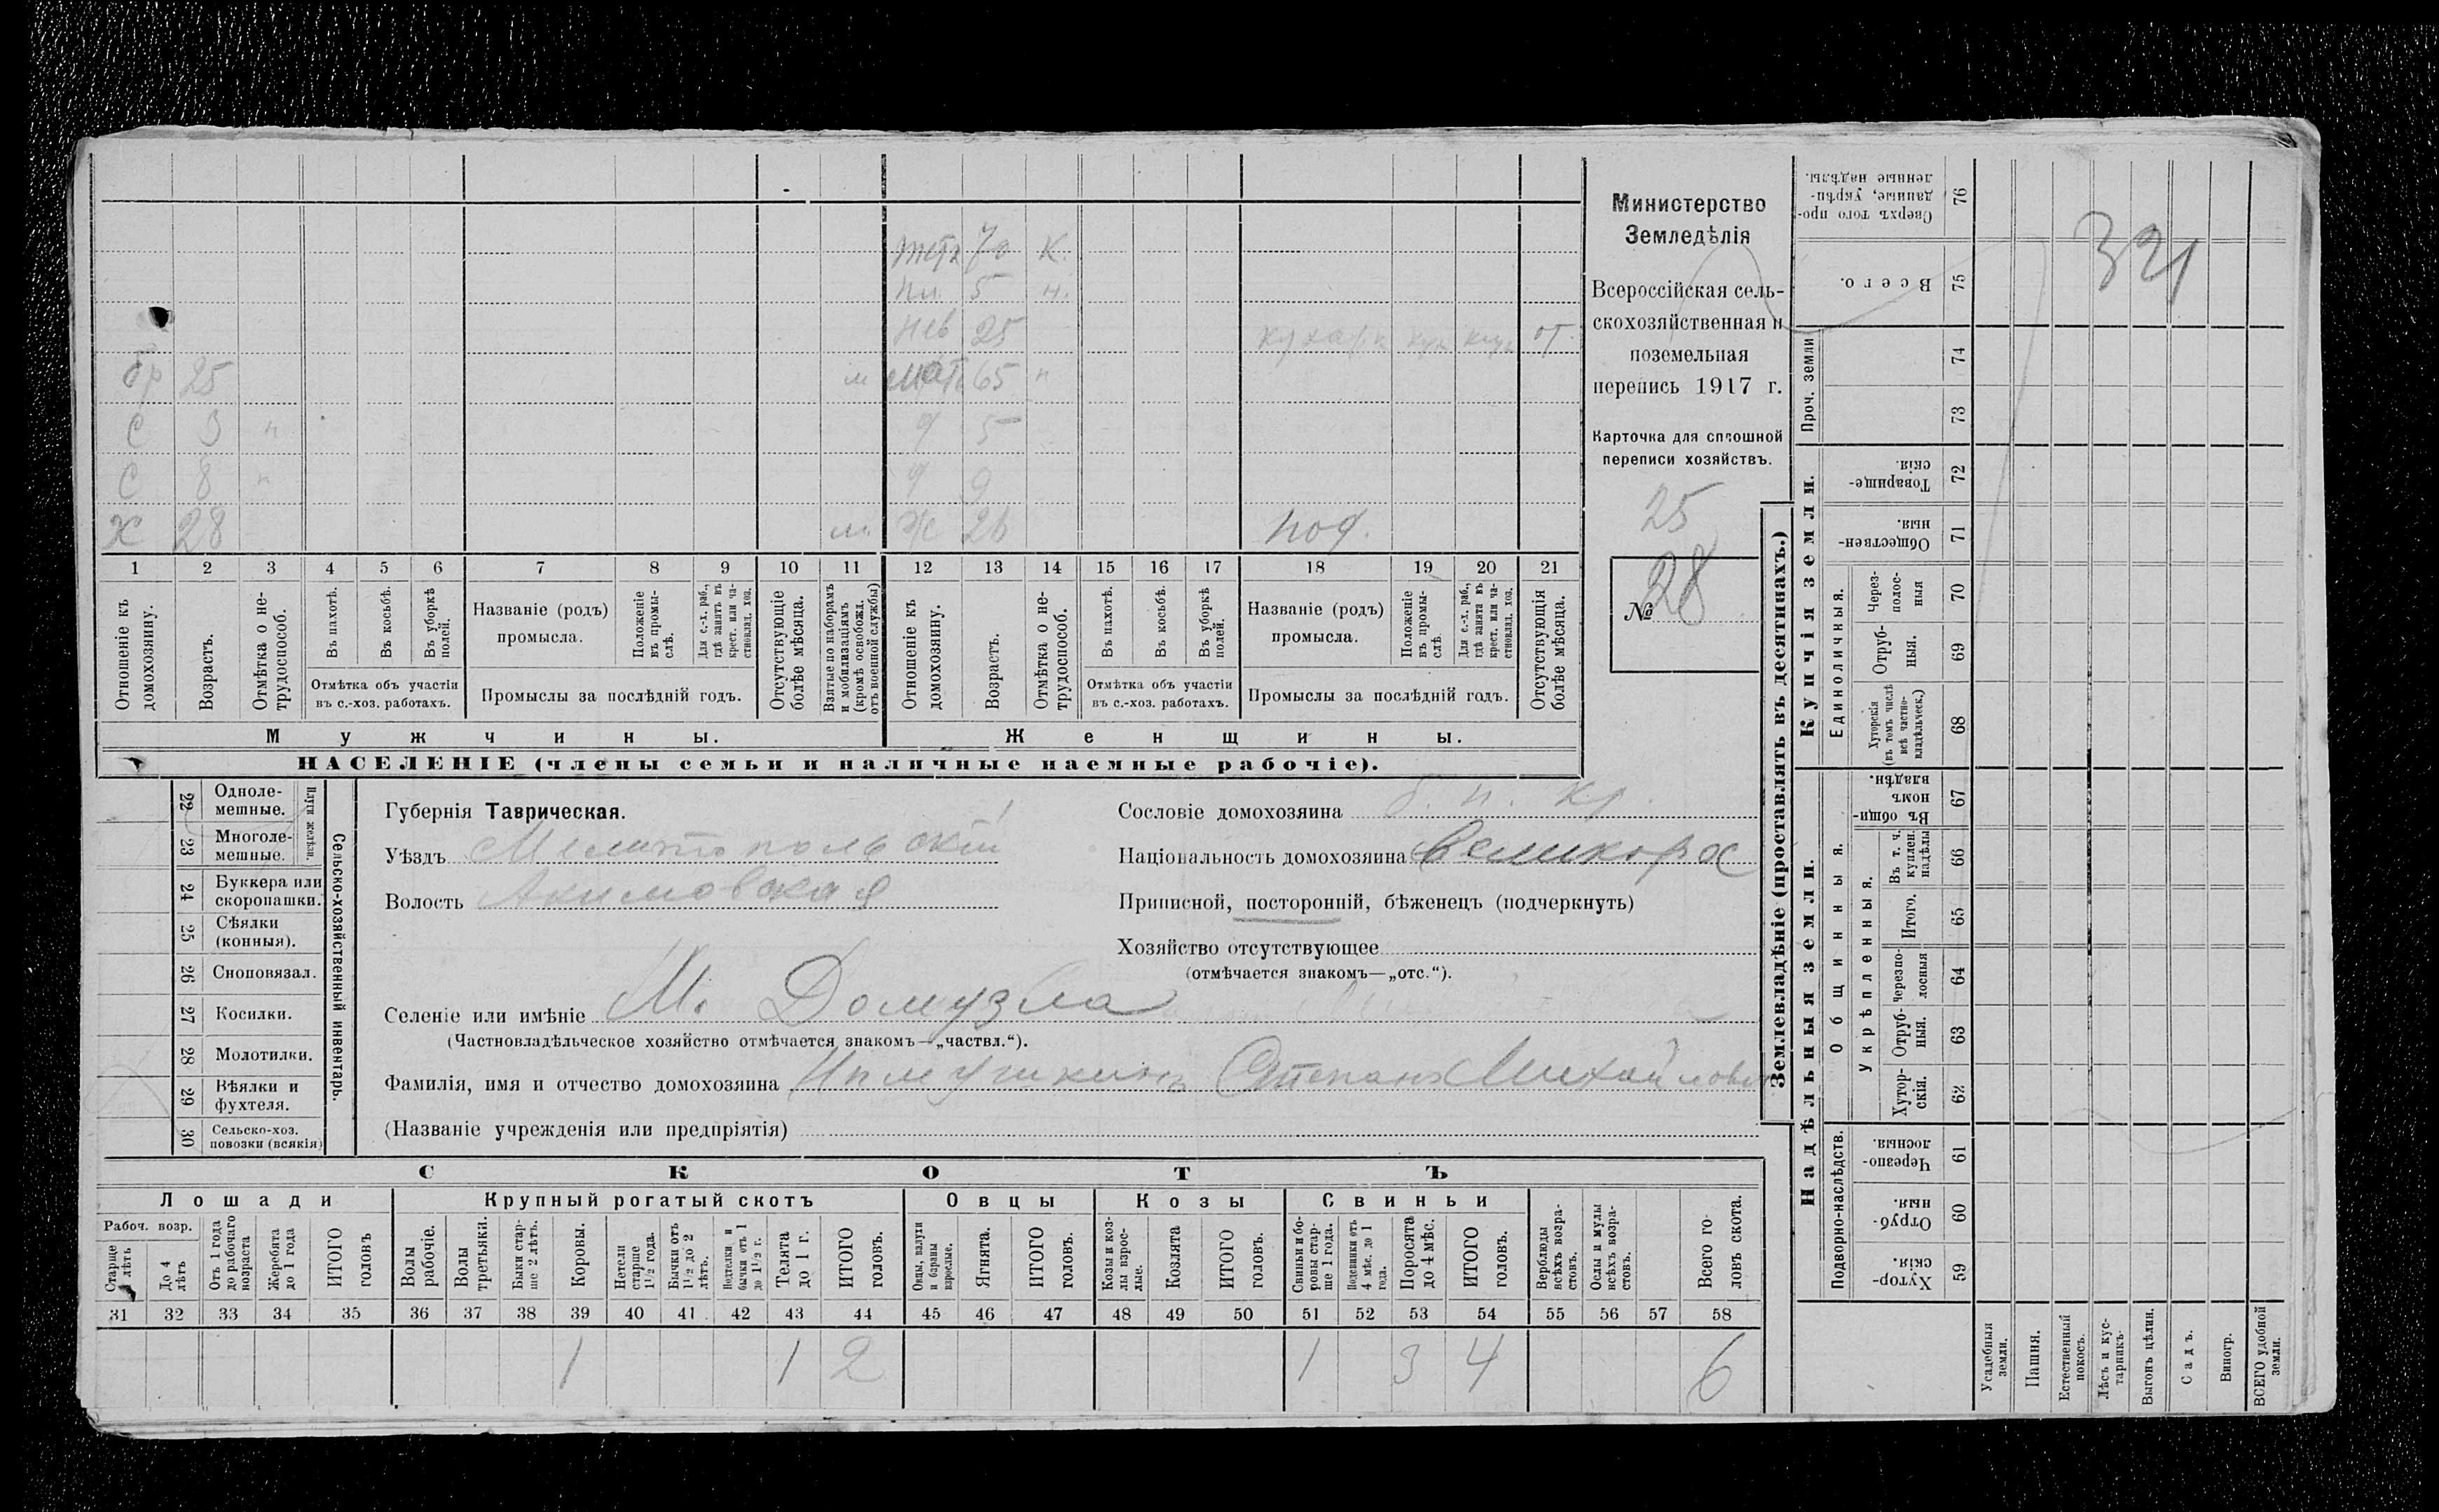 тетк 70 к.
пл. 5 н.
нев 25 кухарк кух кух от
бр 25 м мать 65 н
С 3 н д 5
С 8 н д 9
Х 28 м. Ж 26 под.
1 2 3 4 5 6 7 8 9 10 11 12 13 14 15 16 17 18 19 20 21
Отношеніе къ домохозяину.
Возрастъ.
Отмѣтка о не-трудоспособ.
Въ пахотѣ.
Въ косьбѣ.
Въ уборкѣ полей.
Отмѣтка объ участіи
въ с.-хоз. работахъ.
Названіе (родъ)
промысла.
Положеніе въ промы-слѣ.
Для с.-х. раб., гдѣ занятъ въ крест. или ча-стновлад. хоз.
Промыслы за послѣдній годъ.
Отсутствующіе болѣе мѣсяца.
Взятые по наборамъ и мобилизаціямъ (кромѣ освобожд. отъ военной службы)
Отношеніе къ домохозяину.
Возрастъ.
Отмѣтка о не-трудоспособ.
Въ пахотѣ.
Въ косьбѣ.
Въ уборкѣ полей.
Отмѣтка объ участіи
въ с.-хоз. работахъ.
Названіе (родъ)
промысла.
Положеніе въ промы-слѣ.
Для с.-х. раб., гдѣ занята въ крест. или ча-стновлад. хоз.
Промыслы за послѣдній годъ.
Отсутствующія болѣе мѣсяца.
Мужчины. Женщины.
НАСЕЛЕНІЕ (члены семьи и наличные наемные рабочіе).
Министерство
Земледѣлія
Всероссійская сель-
скохозяйственная и
поземельная
перепись 1917 г.
Карточка для сплошной
переписи хозяйствъ.
25
№ 28
22 Одноле-мешные.
23 Многоле-мешные.
Плуги желѣзн.
24 Буккера или скоропашки.
25 Сѣялки (конныя).
26 Сноповязал.
27 Косилки.
28 Молотилки.
29 Вѣялки и фухтеля.
30 Сельско-хоз. повозки (всякія)
Сельско-хозяйственный инвентарь.
Губернія Таврическая.
Уѣздъ Мелитопольскій
Волость Акимовская
Сословіе домохозяина б. п. кр.
Національность домохозяина Великорос
Приписной, посторонній, бѣженецъ (подчеркнуть)
Хозяйство отсутствующее
(отмѣчается знакомъ—„отс.“).
Селеніе или имѣніе М. Домузла
(Частновладѣльческое хозяйство отмѣчается знакомъ—„частвл.“).
Фамилія, имя и отчество домохозяина Степанъ Михайлович
(Названіе учрежденія или предпріятія)
СКОТЪ
Лошади Крупный рогатый скотъ Овцы Козы Свиньи
Рабоч. возр.
Старше 4 лѣтъ
До 4 лѣтъ
Отъ 1 года до рабочаго возраста
Жеребята до 1 года
ИТОГО головъ
Волы рабочіе.
Волы третьяки.
Быки стар-ше 2 лѣтъ.
Коровы.
Нетели старше 1½ года.
Бычки отъ 1½ до 2 лѣтъ.
Подтелки и бычки отъ 1 до 1½ г.
Телята до 1 г.
ИТОГО головъ.
Овцы, валухи и бараны взрослые.
Ягнята.
ИТОГО головъ.
Козы и коз-лы взрос-лые.
Козлята
ИТОГО головъ.
Свиньи и бо-ровы стар-ше 1 года.
Подсвинки отъ 4 мѣс. до 1 года.
Поросята до 4 мѣс.
ИТОГО головъ.
Верблюды всѣхъ возра-стовъ.
Ослы и мулы всѣхъ возра-стовъ.
Всего го-ловъ скота.
31 32 33 34 35 36 37 38 39 40 41 42 43 44 45 46 47 48 49 50 51 52 53 54 55 56 57 58
1 1 2 1 3 4 6
Землевладѣніе (проставлять въ десятинахъ.)
Надѣльныя земли. Купчія земли. Проч. земли
Подворно-наслѣдств.
Общинныя.
Укрѣпленныя.
Единоличныя.
Сверхъ того про-данные, укрѣп-ленные надѣлы. 76
Всего. 75
74
73
Товарище-скія. 72
Обществен-ныя. 71
Через-полос-ныя 70
Отруб-ныя. 69
Хуторскія (въ томъ числѣ всѣ частно-владѣльческ.) 68
Въ общин-номъ владѣн. 67
Въ т. ч. куплен. надѣлы 66
Итого. 65
Черезпо-лосныя 64
Отруб-ныя. 63
Хутор-скія. 62
Черезпо-лосныя. 61
Отруб-ныя. 60
Хутор-скія. 59
321
Усадебныя земли.
Пашня.
Естественный покосъ.
Лѣсъ и кус-тарникъ.
Выгонъ цѣлин.
Садъ.
Виногр.
ВСЕГО удобной земли.